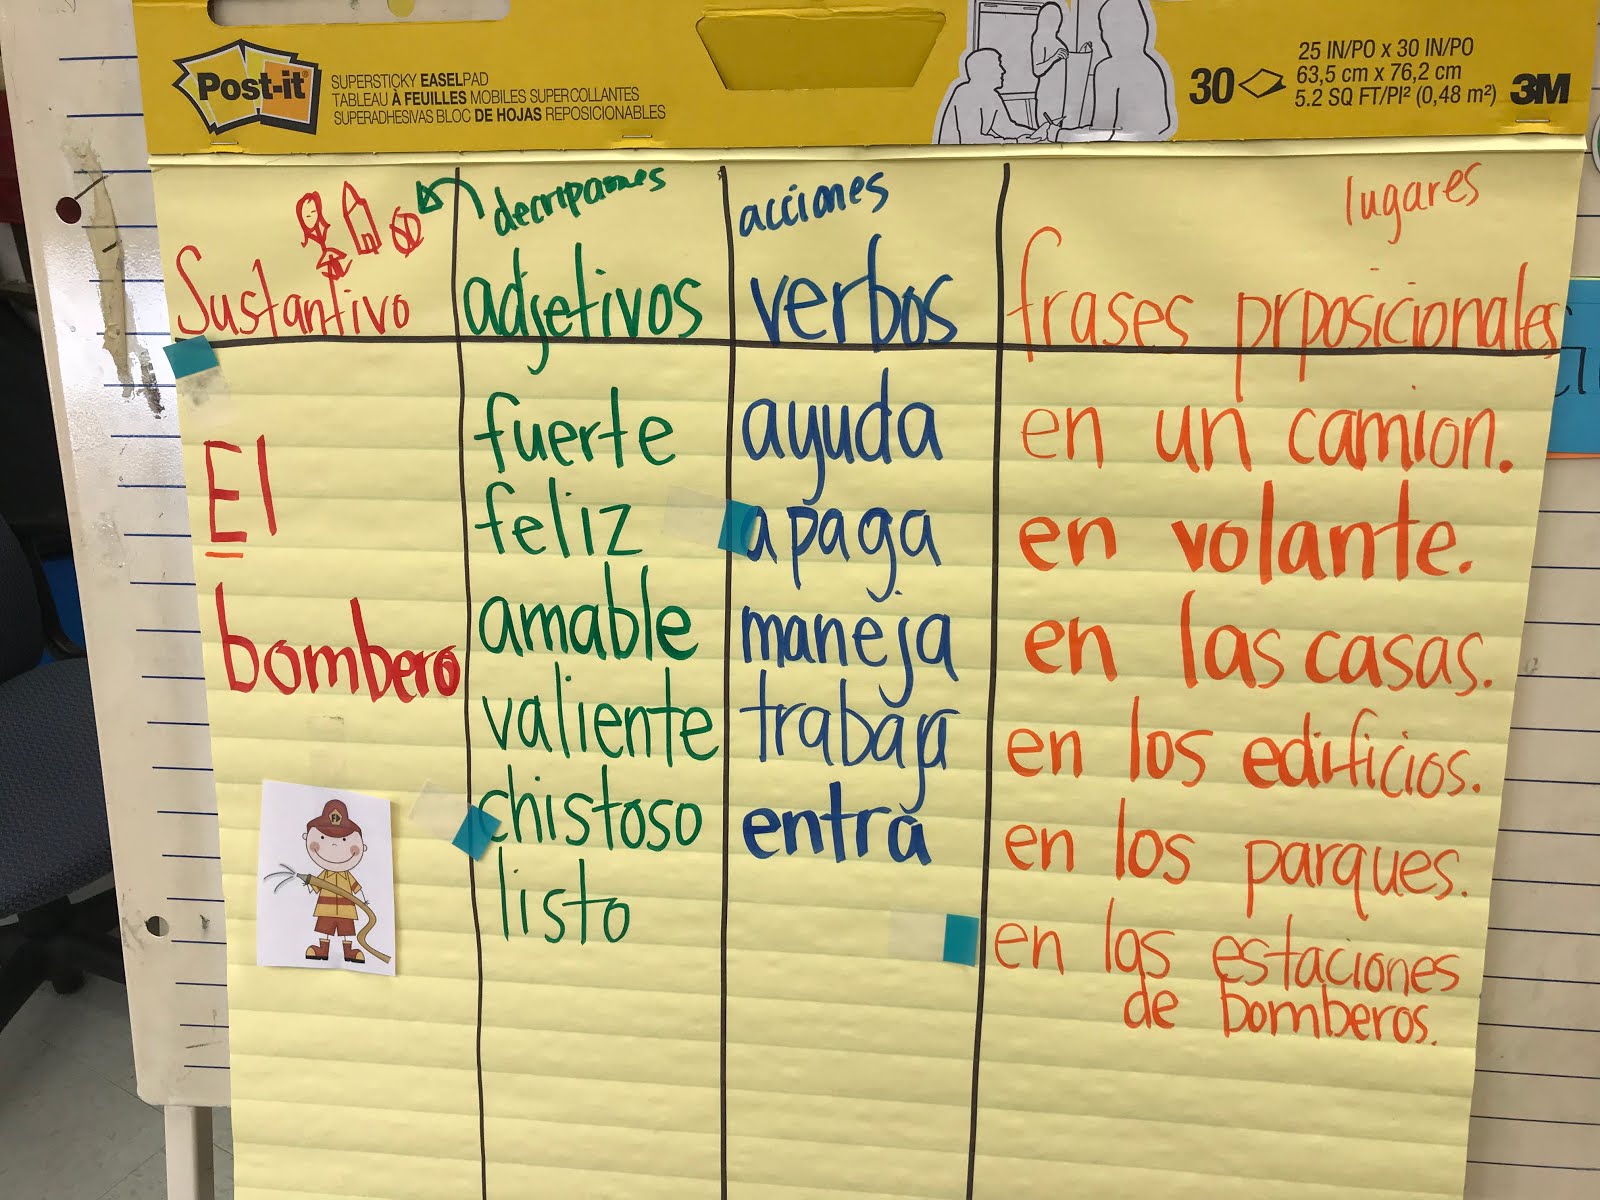 Post-it
SUPERSTICKY EASELPAD
TABLEAU À FEUILLES MOBILES SUPERCOLLANTES
SUPERADHESIVAS BLOC DE HOJAS REPOSICIONABLES
30
25 IN/PO x 30 IN/PO
63,5 cm x 76,2 cm
5.2 SQ FT/PI² (0,48 m²)
3M
Sustantivo
decripciones
adjetivos
acciones
verbos
lugares
frases prposicionales
El
bombero
fuerte
feliz
amable
valiente
chistoso
listo
ayuda
apaga
maneja
trabaja
entra
en un camion.
en volante.
en las casas.
en los edificios.
en los parques.
en las estaciones
de bomberos.